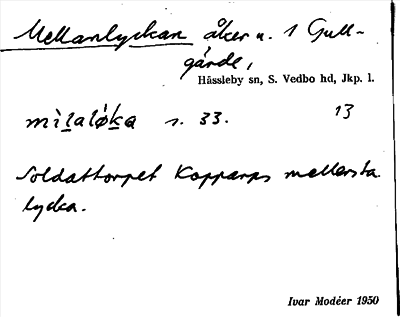 Mellanlyckan åker u. 1 Gull-
gårde,
Hässleby sn, S. Vedbo hd, Jkp. l.
mìlaløka s. 33. 13
Soldattorpet Kopparps mellersta
lycka.
Ivar Modéer 1950